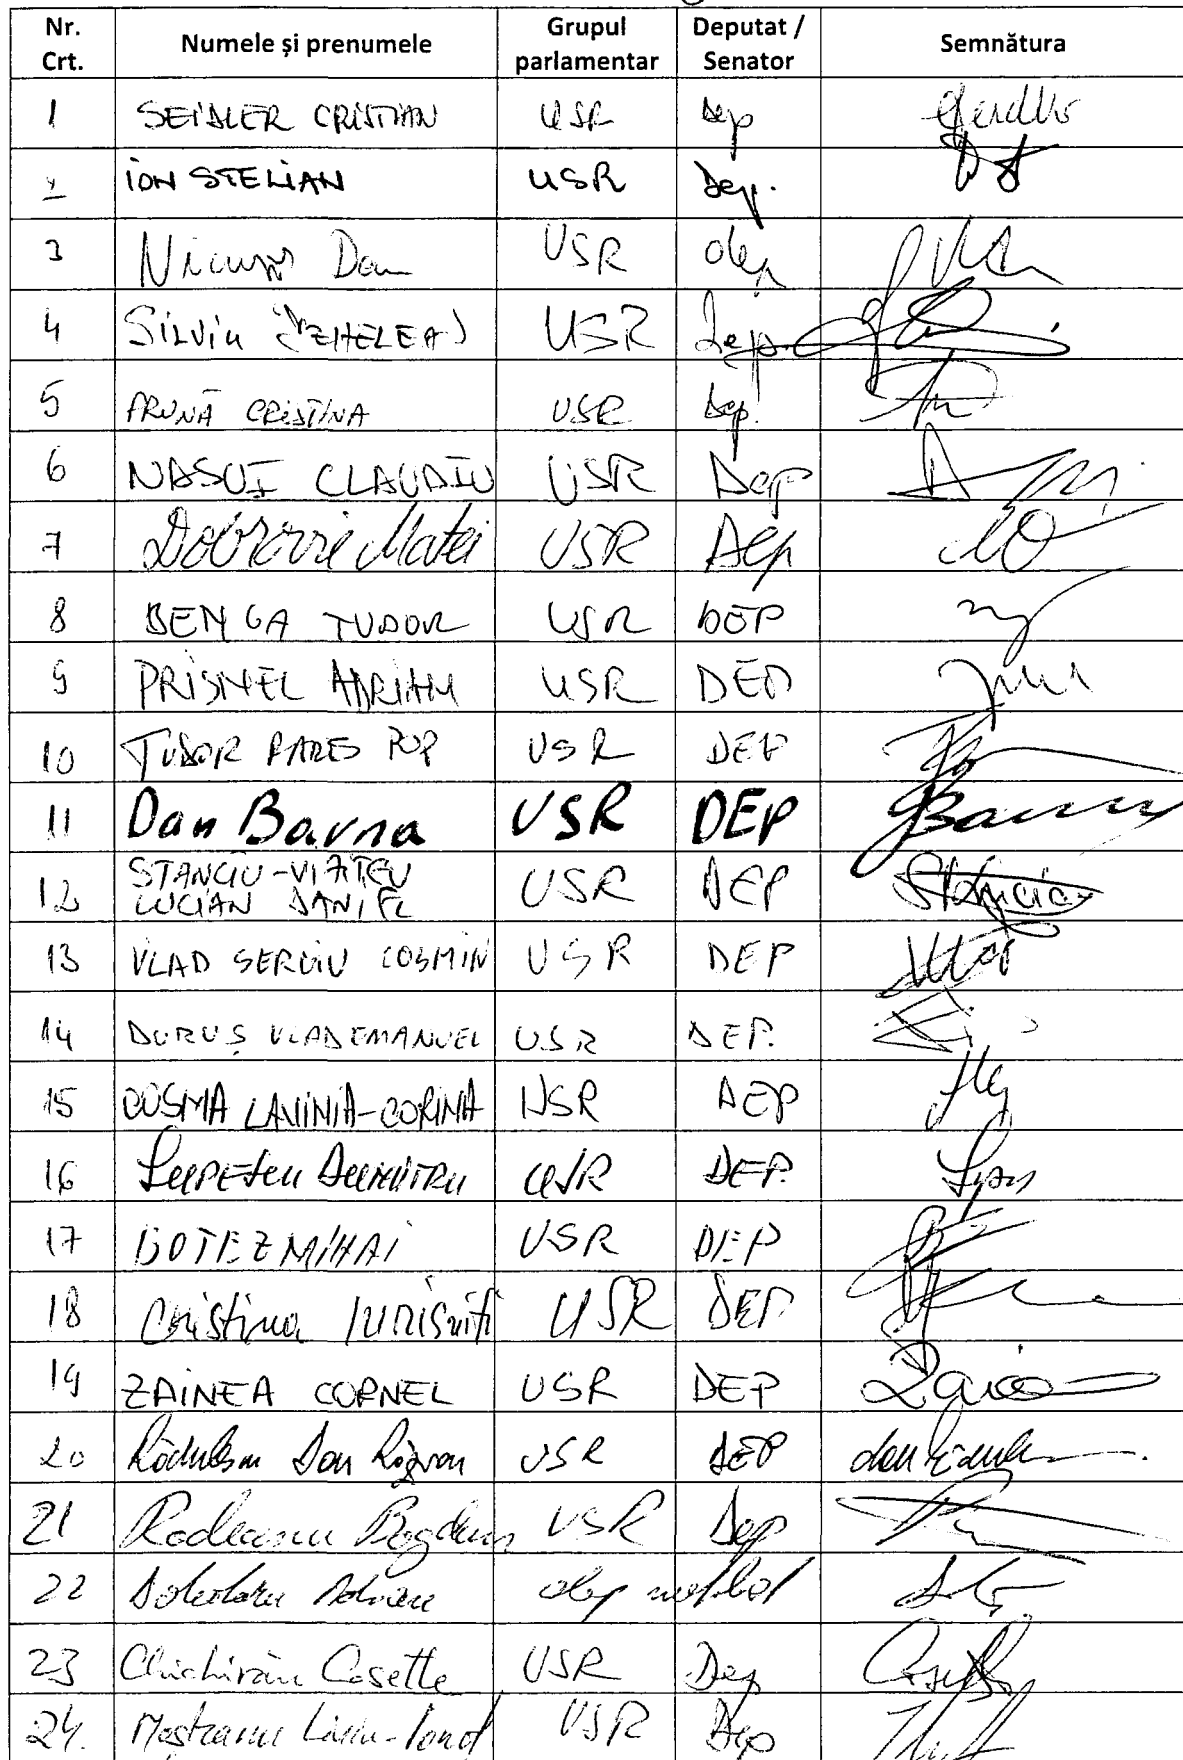 Nr. Crt. Numele și prenumele Grupul parlamentar Deputat / Senator Semnătura
1 SEIDLER CRISTIAN USR Dep
ION STELIAN USR Dep.
3 Nicușor Dan USR dep
4 Silviu DEHELEAN USR Dep.
5 PRUNĂ CRISTINA USR Dep.
6 NASUI CLAUDIU USR Dep
7 Dobrovie Matei USR Dep
8 BENGA TUDOR USR DEP
9 PRISNEL ADRIAN USR DEP
10 TUDOR RAREȘ POP USR DEP
11 Dan Barna USR DEP Barna
12 STANCIU-VIZITEU
LUCIAN DANIEL USR DEP Stanciu
13 VLAD SERGIU COSMIN USR DEP Vlad
14 DURUȘ VLAD EMANUEL USR DEP.
15 COSMA LAVINIA-CORINA USR DEP
16 Lupescu Dumitru USR DEP.
17 BOTEZ MIHAI USR DEP
18 Cristina IURIȘNIȚI USR DEP
19 ZAINEA CORNEL USR DEP
20 Rădulescu Dan Răzvan USR DEP
21 Rodeanu Bogdan USR Dep
22 Dohotaru Adrian dep neafiliat
23 Chichirău Cosette USR Dep
24. Moșteanu Liviu-Ionuț USR Dep